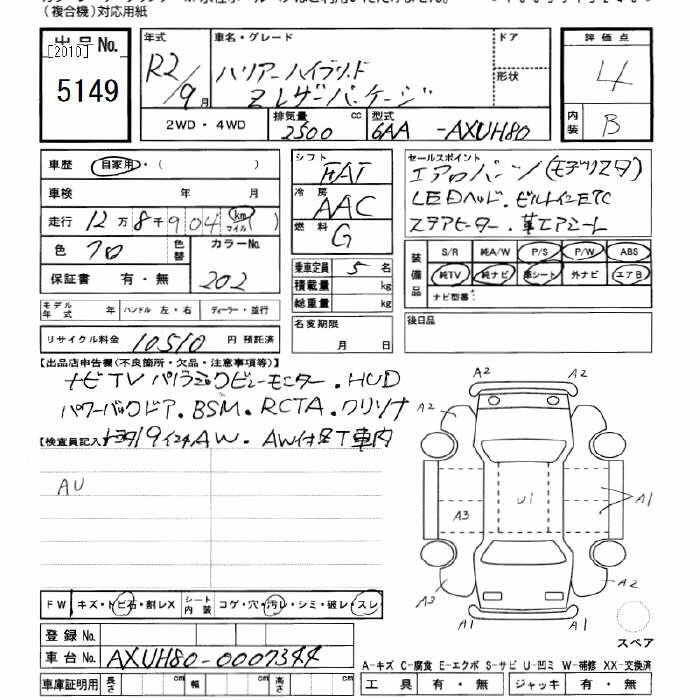 (複合機)対応用紙
出品No.
[2010]
5149
年式
R2/9月
車名・グレード
ハリアーハイブリッド
Zレザーパッケージ
ドア
形状
評価点
4
内装
B
2WD・4WD
排気量 cc
2500
型式
6AA -AXUH80
車歴 自家用・( )
車検 年 月
走行 12万8千904 (km マイル)
色 クロ
色替
カラーNo.
202
保証書 有・無
シフト
FAT
冷房
AAC
燃料
G
乗車定員 5名
積載量 kg
総重量 kg
セールスポイント
エアロパーツ(モデリスタ)
LEDヘッド.ビルトインETC
ステアヒーター.革エアシート
装備品
S/R 純A/W P/S P/W ABS
純TV 純ナビ 革シート 外ナビ エアB
ナビ型番:
モデル年式 年
ハンドル 左・右
ディーラー・並行
リサイクル料金 10510 円 預託済
名変期限
月 日
後日品
【出品店申告欄(不良箇所・欠品・注意事項等)】
ナビTV パノラミックビューモニター.HUD
パワーバックドア.BSM.RCTA.クリソナ
トヨタ19インチAW.
車内
【検査員記入】
AU
A2
A2
A2
A3
U1
A1
A3
A2
A1
A1
スペア
FW キズ・トビ石・割レX
シート内装 コゲ・穴・汚レ・シミ・破レ・スレ
登録No.
車台No. AXUH80-0007344
車庫証明用 長さ cm 幅 cm 高さ cm
A-キズ C-腐食 E-エクボ S-サビ U-凹ミ W-補修 XX-交換済
工具 有・無 ジャッキ 有・無